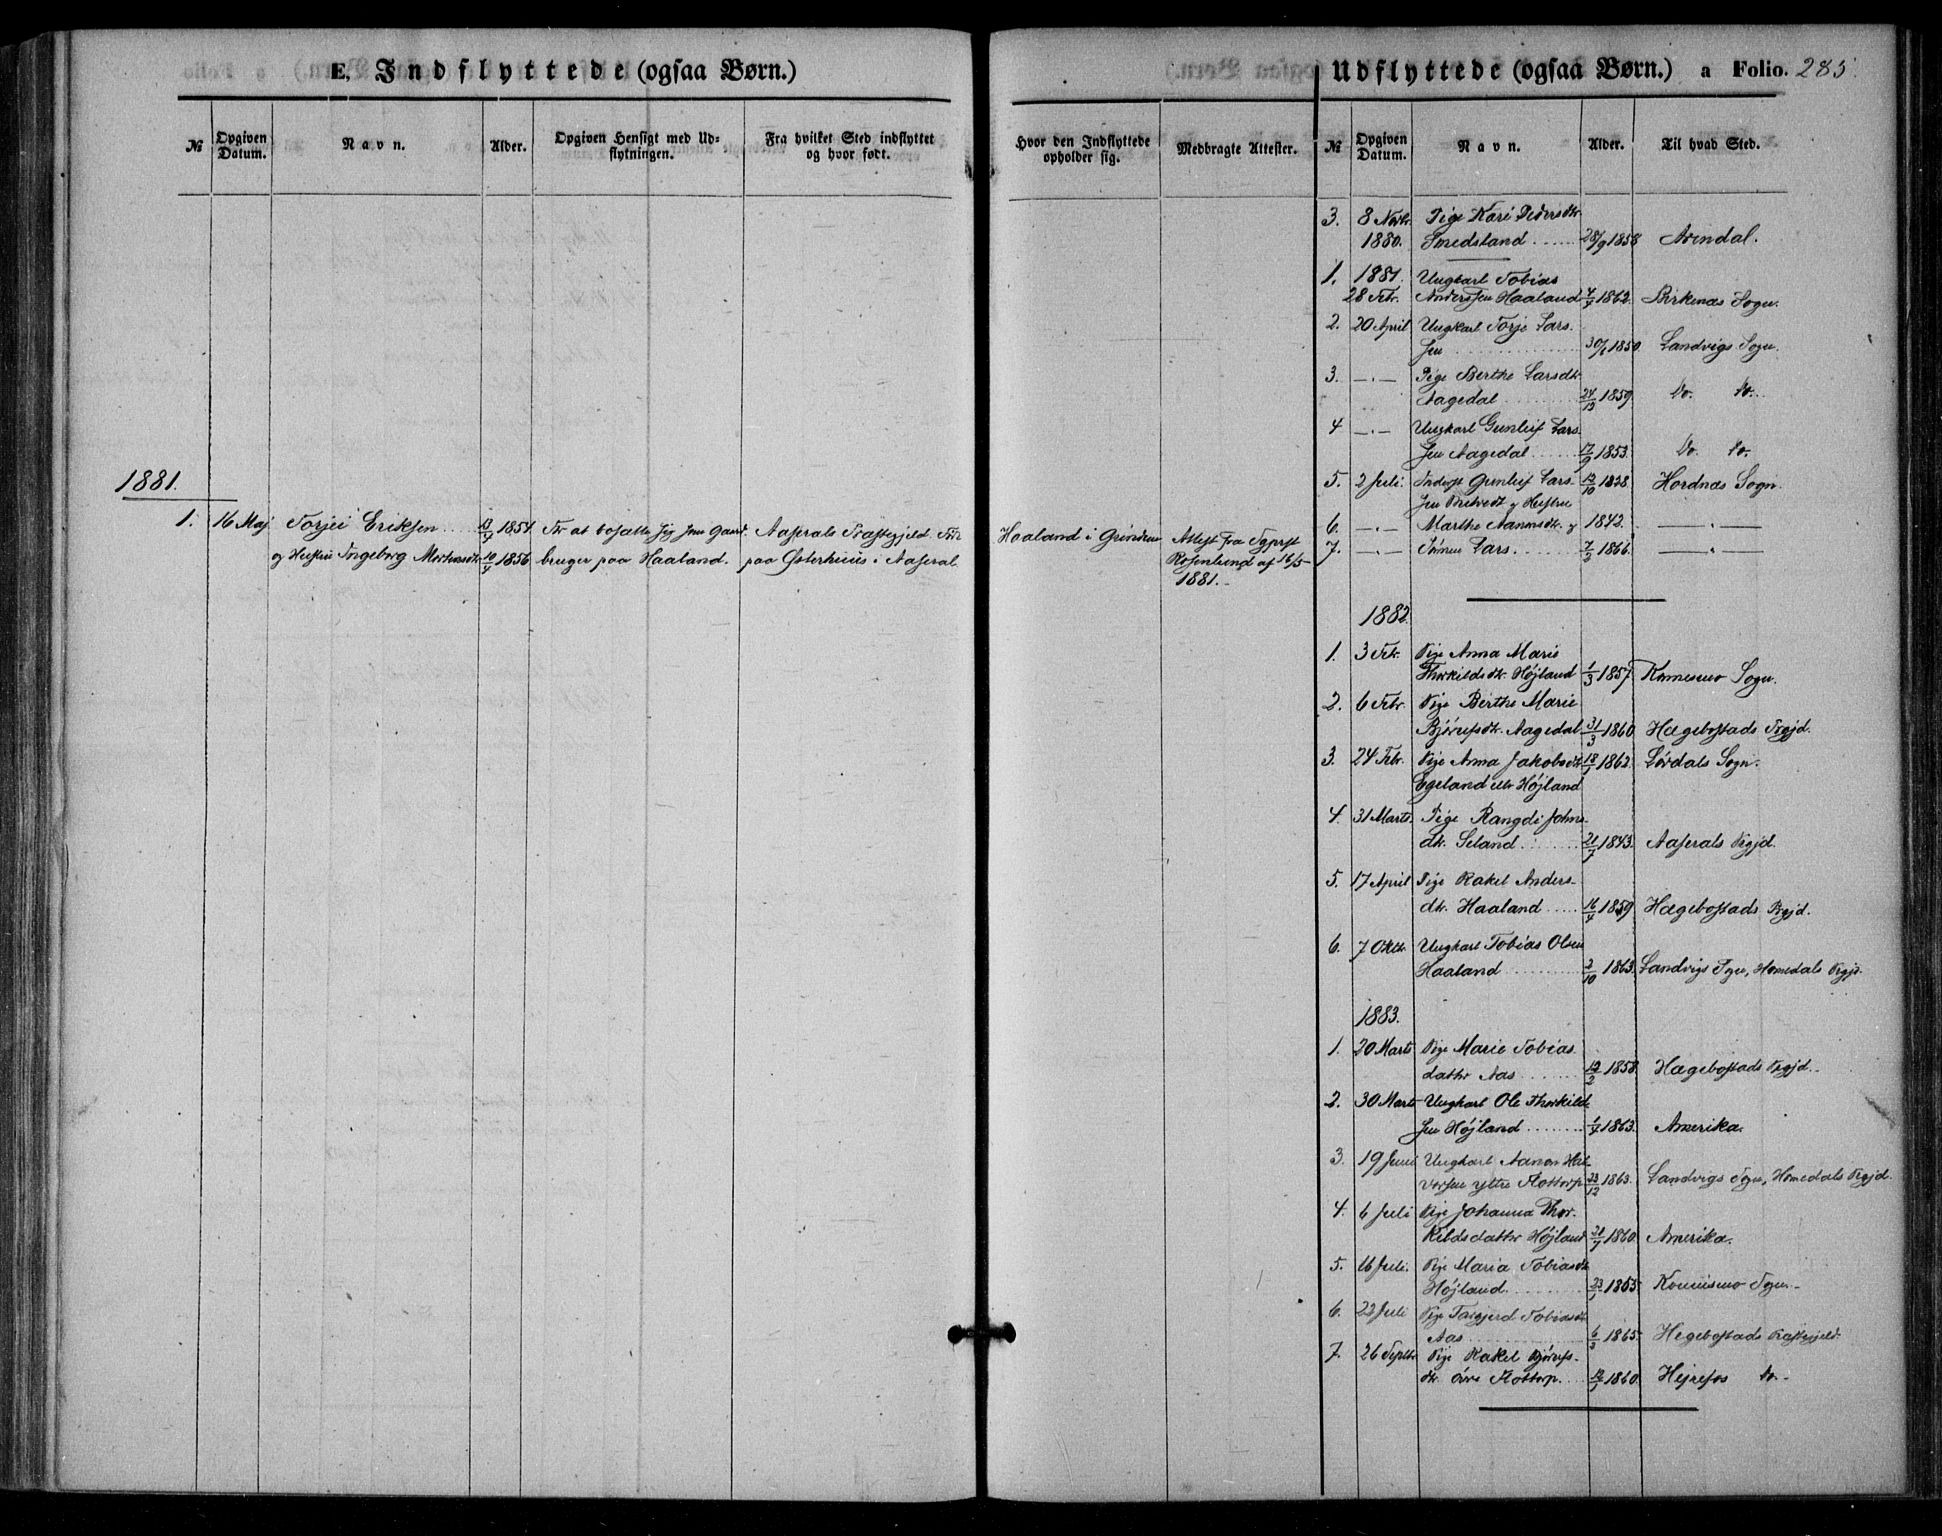 E. Indflyttede (ogsaa Børn.)
№ Opgiven Datum. Navn. Alder. Opgiven Hensigt med Udflytningen. Fra hvilket Sted indflyttet og hvor født.
1881.
1. 16 Maj Torjei Eriksen 1854 For at bosætte sig som Gaard- Aaserals Præstegjeld. Født
og Hustru Ingeborg Mortensdtr 10/4 1856 bruger paa Haaland. paa Østerhuus i Aaseral
Udflyttede (ogsaa Børn.) a Folio. 285.
Hvor den Indflyttede opholder sig. Medbragte Attester. № Opgiven Datum. Navn. Alder. Til hvad Sted.
Haaland i Grindum Attest fra Sgprst
Rosenlund af 16/5
1881.
3. 8 Novbr. Pige Kari Pedersdtr
1880. Smedsland 28/9 1858 Arendal.
1. 1881. Ungkarl Tobias
28 Febr. Anderssen Haaland 4/7 1862. Birkenæs Sogn.
2. 20 April Ungkarl Torje Lars-
sen 1850. Landvigs Sogn.
3. —"— Pige Berthe Larsdtr.
Aagedal 24/12 1859. Do. Do.
4 —"— Ungkarl Gunleif Lars-
sen Aagedal 17/9 1853. Do. Do.
5. 2 Juli. Inderst Gunleif Lars- 12/10 1828. Hordnæs Sogn.
sen Bredvedt og Hustru
6. —"— Marthe Aanensdtr. og 1842. —"—
7. —"— Sønnen Lars. 7/2 1866. —"—
1882.
1. 3 Febr. Pige Anna Marie
Thorkildsdtr. Højland 1/3 1857. Konnesmo Sogn.
2. 6 Febr. Pige Berthe Marie
Bjørufsdtr. Aagedal 31/3 1860. Hægebostads Prgjd.
3. 24 Febr. Pige Anna Jakobsdtr 18/1 1862. Lørdals Sogn.
Egeland eller Højland
4. 31 Marts. Pige Rangdi Johns-
dtr. Seland 21/7 1843. Aaserals Prgjd.
5. 17 April Pige Rakel Anders-
dtr. Haaland 16/4 1859 Hægebostads Prgjd.
6. 7 Oktbr. Ungkarl Tobias Olsen
Haaland 2/10 1863. Landvigs Sogn, Homedals Prgjd.
1883.
1. 20 Marts Pige Marie Tobias
datter Aas 12/2 1858. Hægebostads Prgjd.
2. 30 Marts Ungkarl Ole Thorkild-
sen Højland 1/7 1863. Amerika.
3. 19 Juni Ungkarl Aanon Hal-
vorsen ytre Flottorp 23/12 1863. Landvigs Sogn, Homedals Prgjd.
4. 6 Juli Pige Johanna Thor-
kildsdatter Højland 21/7 1860. Amerika.
5. 16 Juli. Pige Maria Tobiasdtr
Højland 23/1 Konnismo Sogn.
6. 22 Juli Pige Torgjerd Tobiasdtr
Aas 6/3 1865. Hegebostads Præstegjeld.
7. 26 Septbr. Pige Rakel Bjørufs-
dtr. övre Flottorp. 12/1 1860. Hejrefos Do.